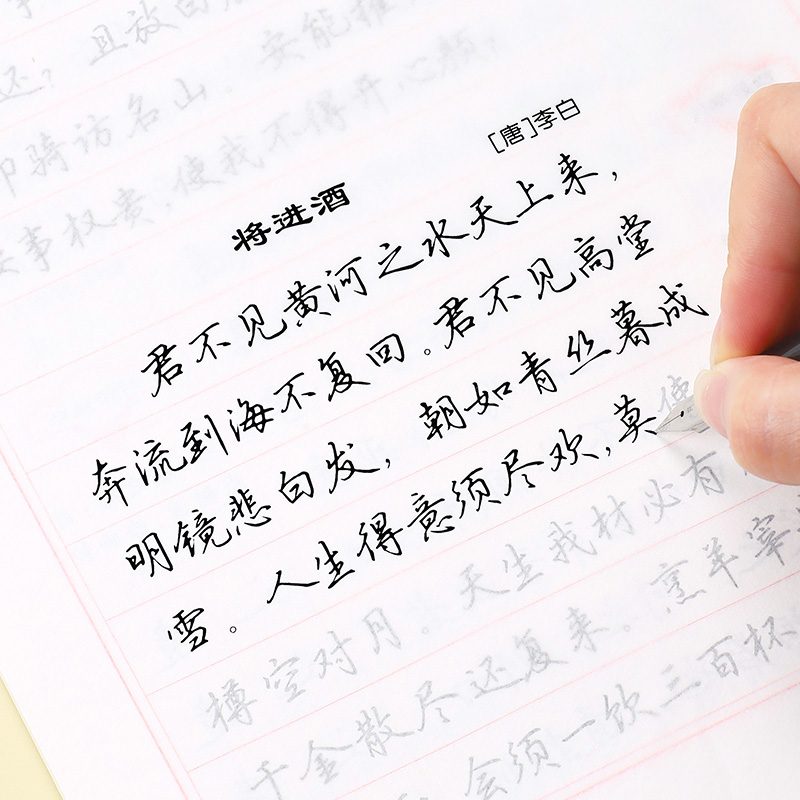 还，且放白
即骑访名山。安能摧
事权贵，使我不得开心颜
[唐]李白
将进酒
君不见黄河之水天上来，
奔流到海不复回。君不见高堂
明镜悲白发，朝如青丝暮成
雪。人生得意须尽欢，莫使
樽空对月。天生我材必有
千金散尽还复来。烹羊宰
会须一饮三百杯